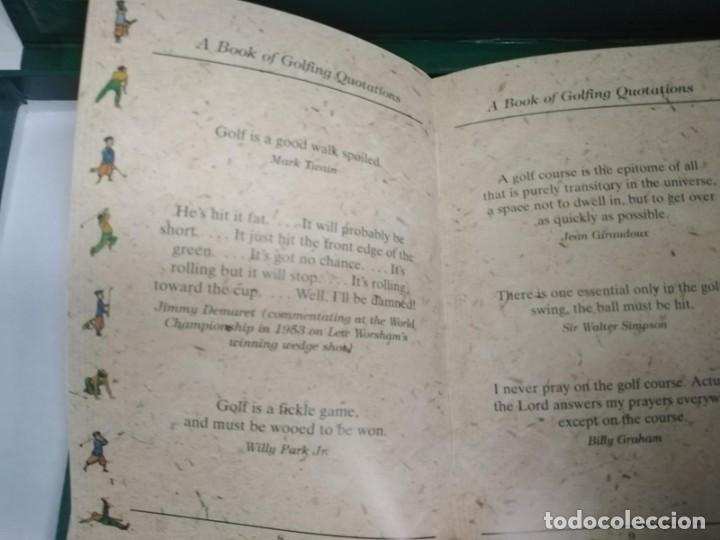 A Book of Golfing Quotations
Golf is a good walk spoiled.
Mark Twain
He's hit it fat. . . . It will probably be
short. . . . It just hit the front edge of the
green. . . . It's got no chance. . . . It's
rolling but it will stop. . . . It's rolling
toward the cup. . . . Well, I'll be damned!
Jimmy Demaret (commentating at the World
Championship in 1953 on Lew Worsham's
winning wedge shot)
Golf is a fickle game,
and must be wooed to be won.
Willy Park Jr.
8
A Book of Golfing Quotations
A golf course is the epitome of all
that is purely transitory in the universe,
a space not to dwell in, but to get over
as quickly as possible.
Jean Giraudoux
There is one essential only in the golf
swing, the ball must be hit.
Sir Walter Simpson
I never pray on the golf course. Actu
the Lord answers my prayers everyw
except on the course.
Billy Graham
9
todocoleccion.net